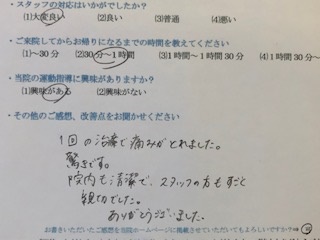 ・スタッフの対応はいかがでしたか?
(1)大変良い (2)良い (3)普通 (4)悪い
・ご来院してからお帰りになるまでの時間を教えてください
(1)~30分 (2)30分~1時間 (3)1時間~1時間30分 (4)1時間30分~
・当院の運動指導に興味がありますか?
(1)興味がある (2)興味がない
・その他のご感想、改善点をお聞かせください
1回の治療で痛みがとれました。
驚きです。
院内も清潔で、スタッフの方もすごく
親切でした。
ありがとうございました。
お書きいただいたご感想を当院ホームページに掲載させていただいてもよろしいですか?